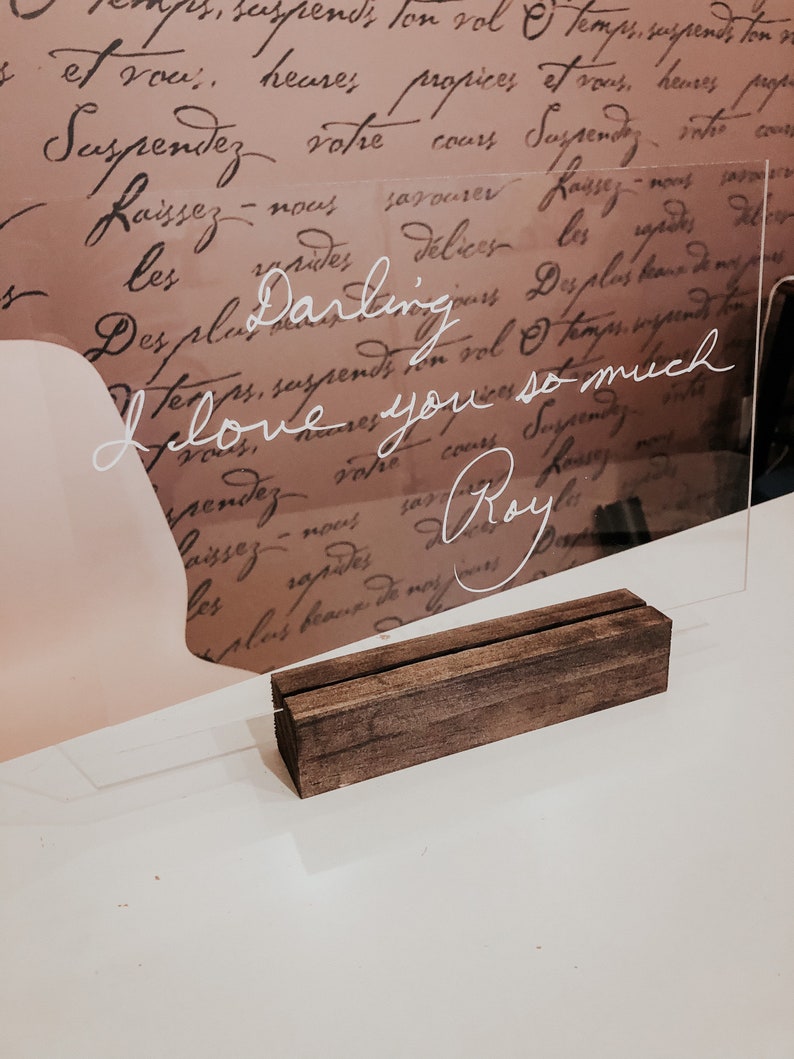 temps, suspends ton vol Ô temps, suspends ton
et vous, heures propices et vous, heures
Suspendez votre cours Suspendez votre cours
Laissez-nous savourer Laissez-nous savourer
les rapides délices les rapides délices
Des plus beaux de nos jours Des plus beaux de nos jours
temps, suspends ton vol Ô temps, suspends ton
vous, heures propices et vous, heures
Suspendez votre cours
Laissez-nous savourer Laissez-nous
les rapides délices les
Des plus beaux de nos jours Des
Darling
I love you so much
Roy